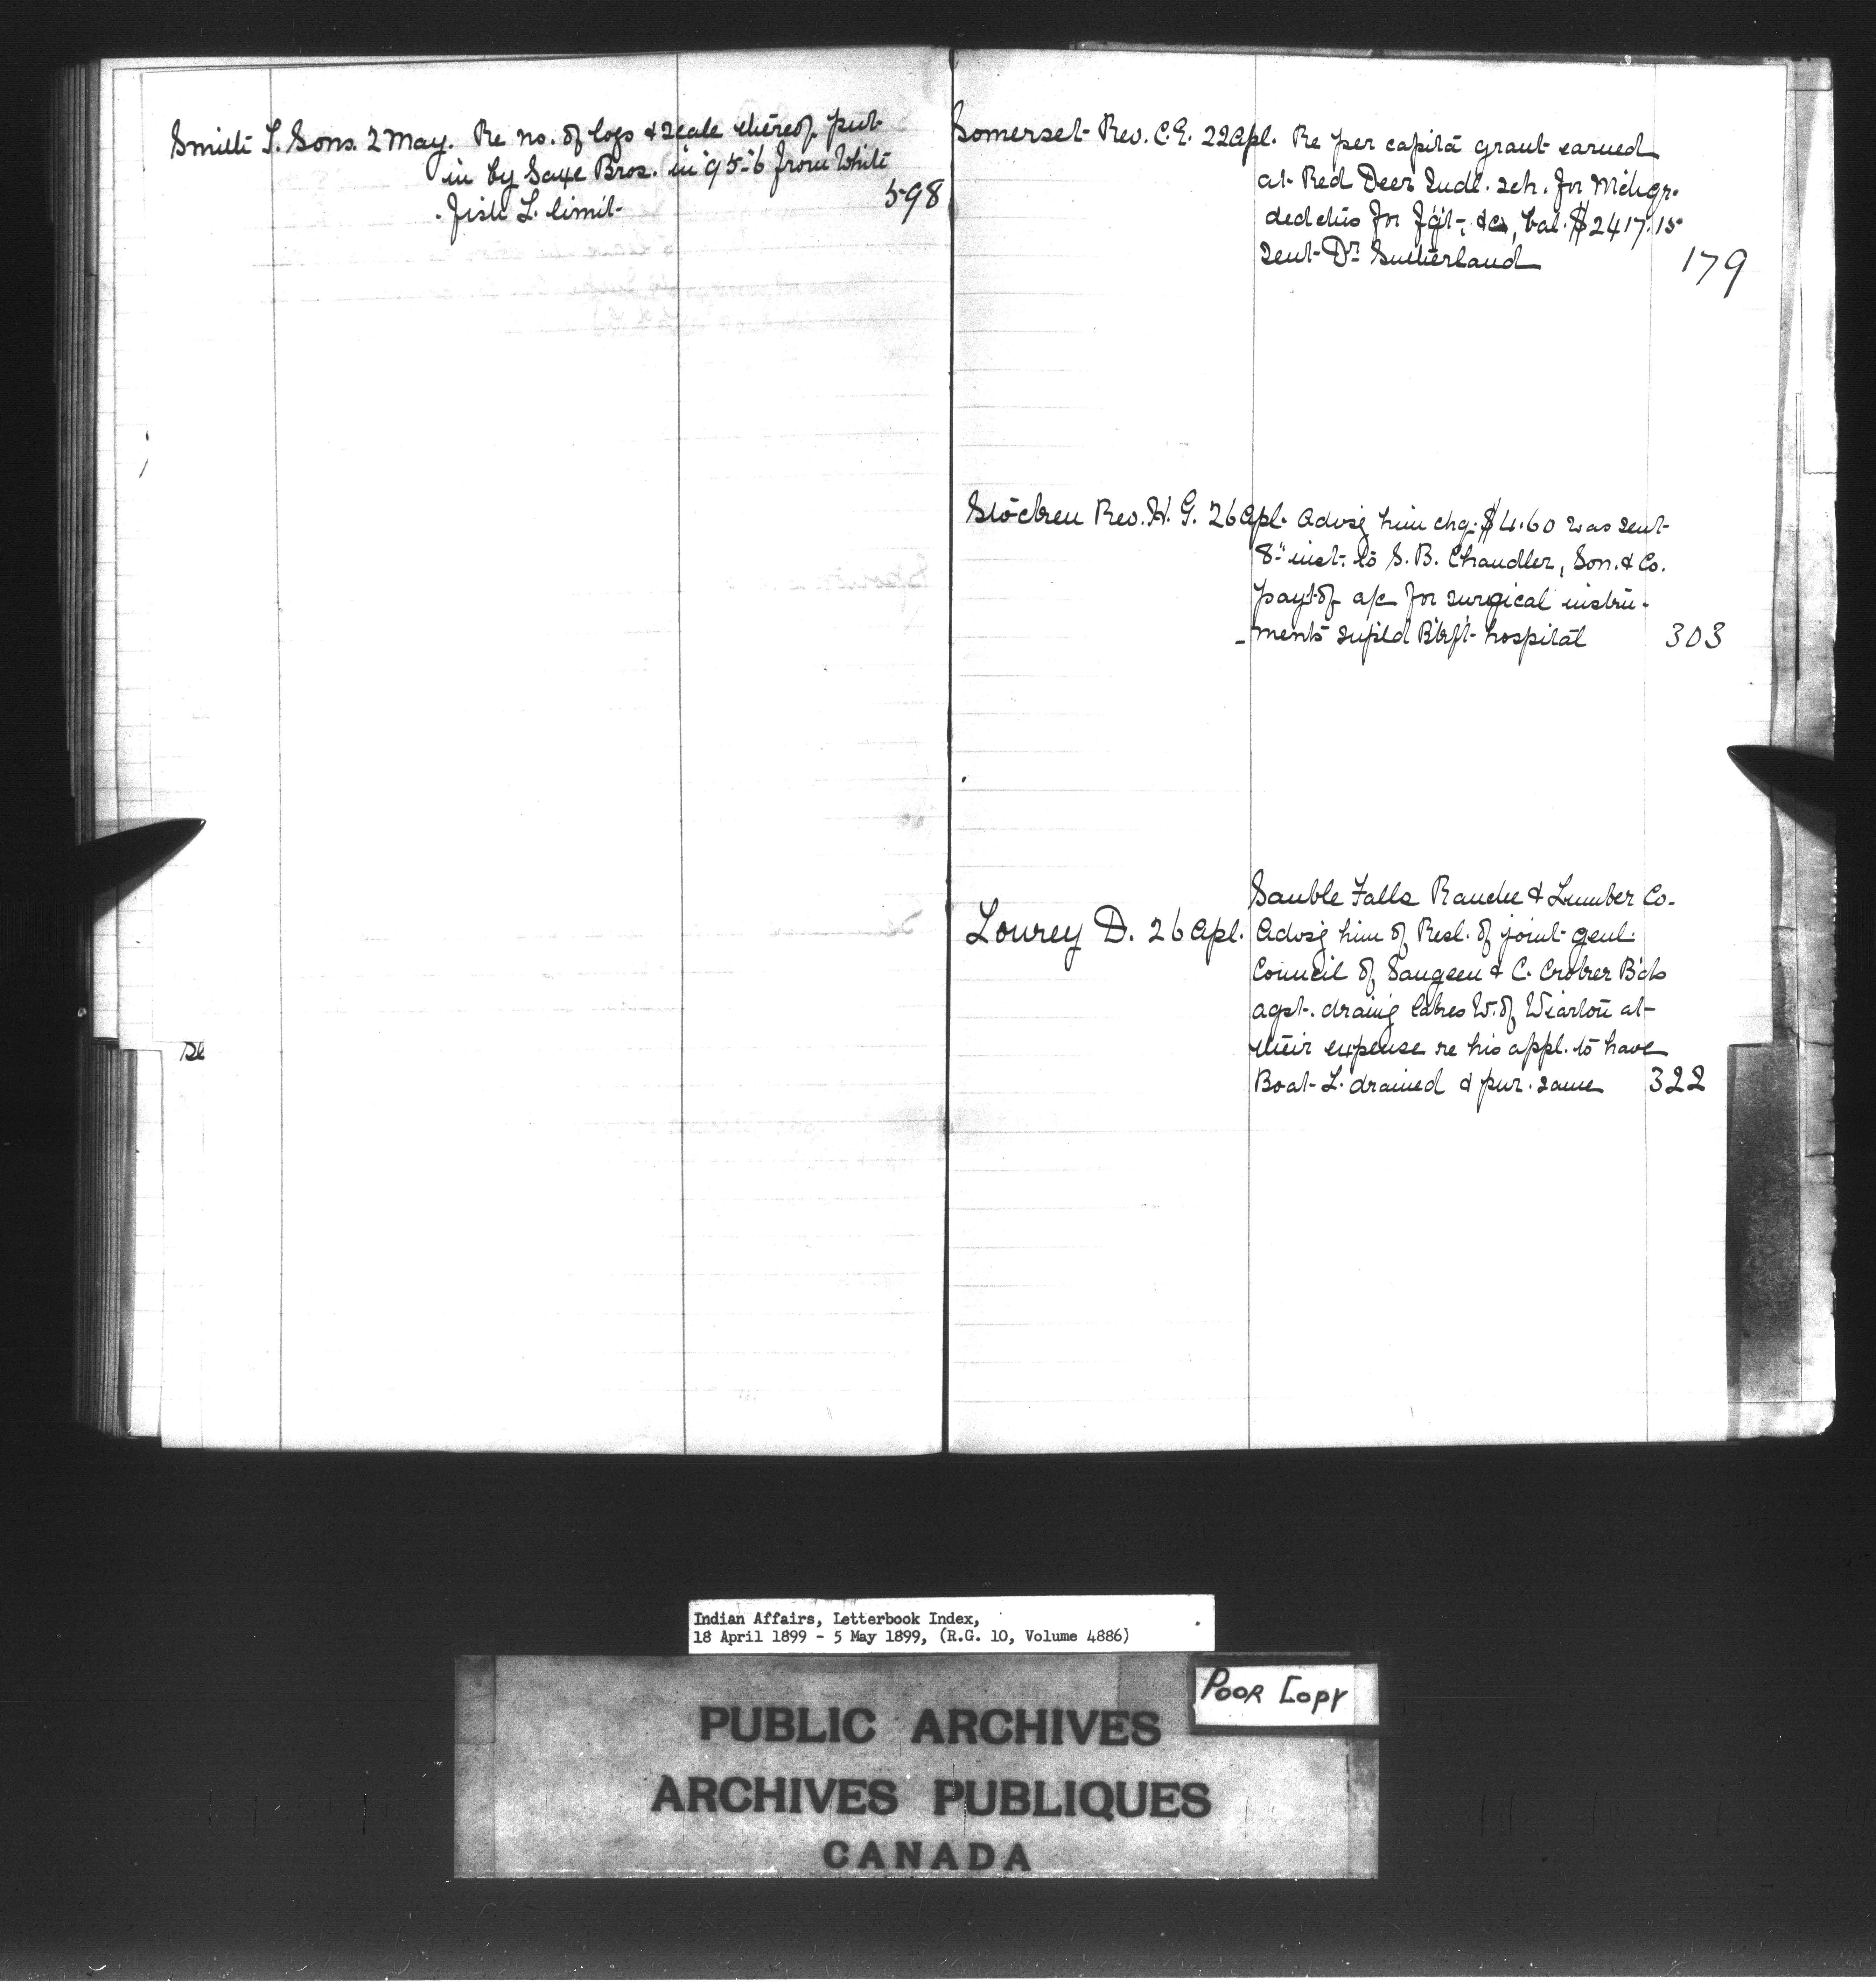 Smith S. Sons. 2 May. Re no. of logs & scale thereof put
in by Saxe Bros. in '95-'6 from White
fish L. limit. 598
Somerset Rev. C.E. 22 Apl. Re per capita grant earned
at Red Deer Indl. sch. for Mch qr.
dedctns for fgt. &c, bal. $2417.15
sent Dr. Sutherland 179
Stocken Rev. H. G. 26 Apl. Advsg him chq. $4.60 was sent
8" inst. to S. B. Chandler, Son. & Co.
payt of a/c for surgical instru-
-ments supld Blkft hospital 303
Sauble Falls Ranche & Lumber Co.
Lourey D. 26 Apl. Advsg him of Resl. of joint genl.
Council of Saugeen & C. Croker Bds
agst. draing lakes W. of Wiarton at
their expense re his appl. to have
Boat L. drained & pur. same 322
Indian Affairs, Letterbook Index,
18 April 1899 - 5 May 1899, (R.G. 10, Volume 4886)
POOR COPY
PUBLIC ARCHIVES
ARCHIVES PUBLIQUES
CANADA